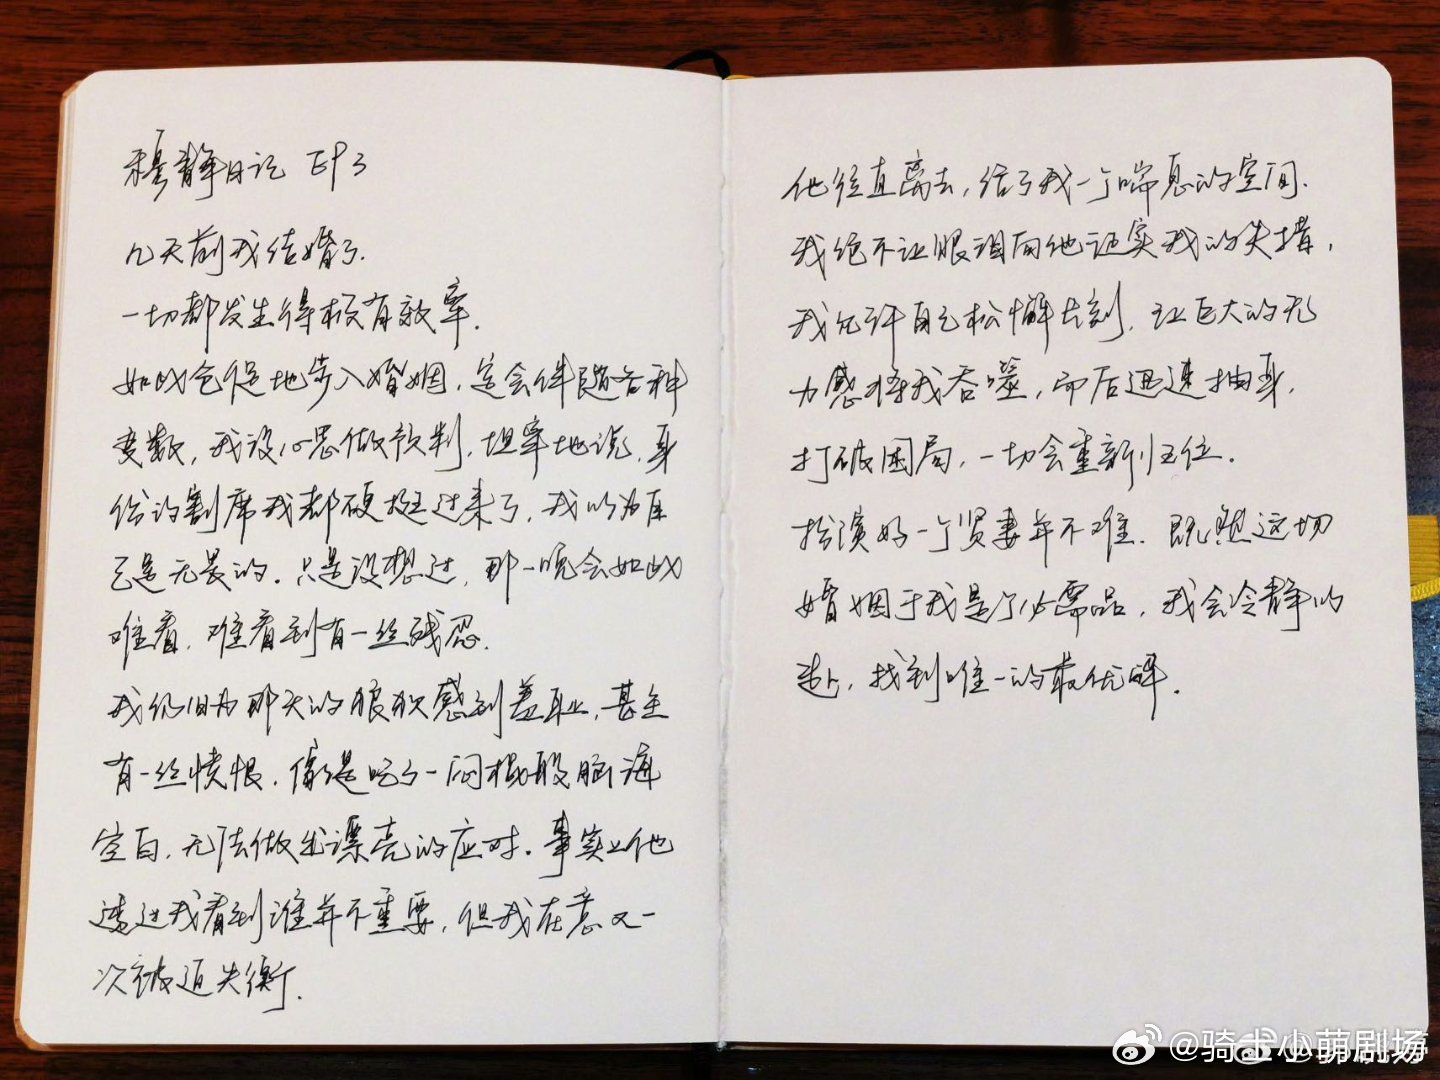 穆静日记 EP3
几天前我结婚了.
一切都发生得极有效率.
如此仓促地步入婚姻,定会伴随各种
变数,我没心思做预判,坦率地说,身
份的割席我都硬挺过来了,我以为自
己是无畏的.只是没想过,那一晚会如此
难看,难看到有一丝残忍.
我仍旧为那天的狼狈感到羞耻,甚至
有一丝愤恨.像是吃了一闷棍般脑海
空白,无法做出漂亮的应对.事实上他
透过我看到谁并不重要,但我在意又一
次被迫失衡.
他径直离去,给了我一个喘息的空间.
我绝不让眼泪向他证实我的失措,
我允许自己松懈片刻,让巨大的无
力感将我吞噬,而后迅速抽身.
打破困局,一切会重新归位.
扮演好一个贤妻并不难.既然这场
婚姻于我是个必需品,我会冷静以
赴,找到唯一的最优解.
@骑士小萌剧场